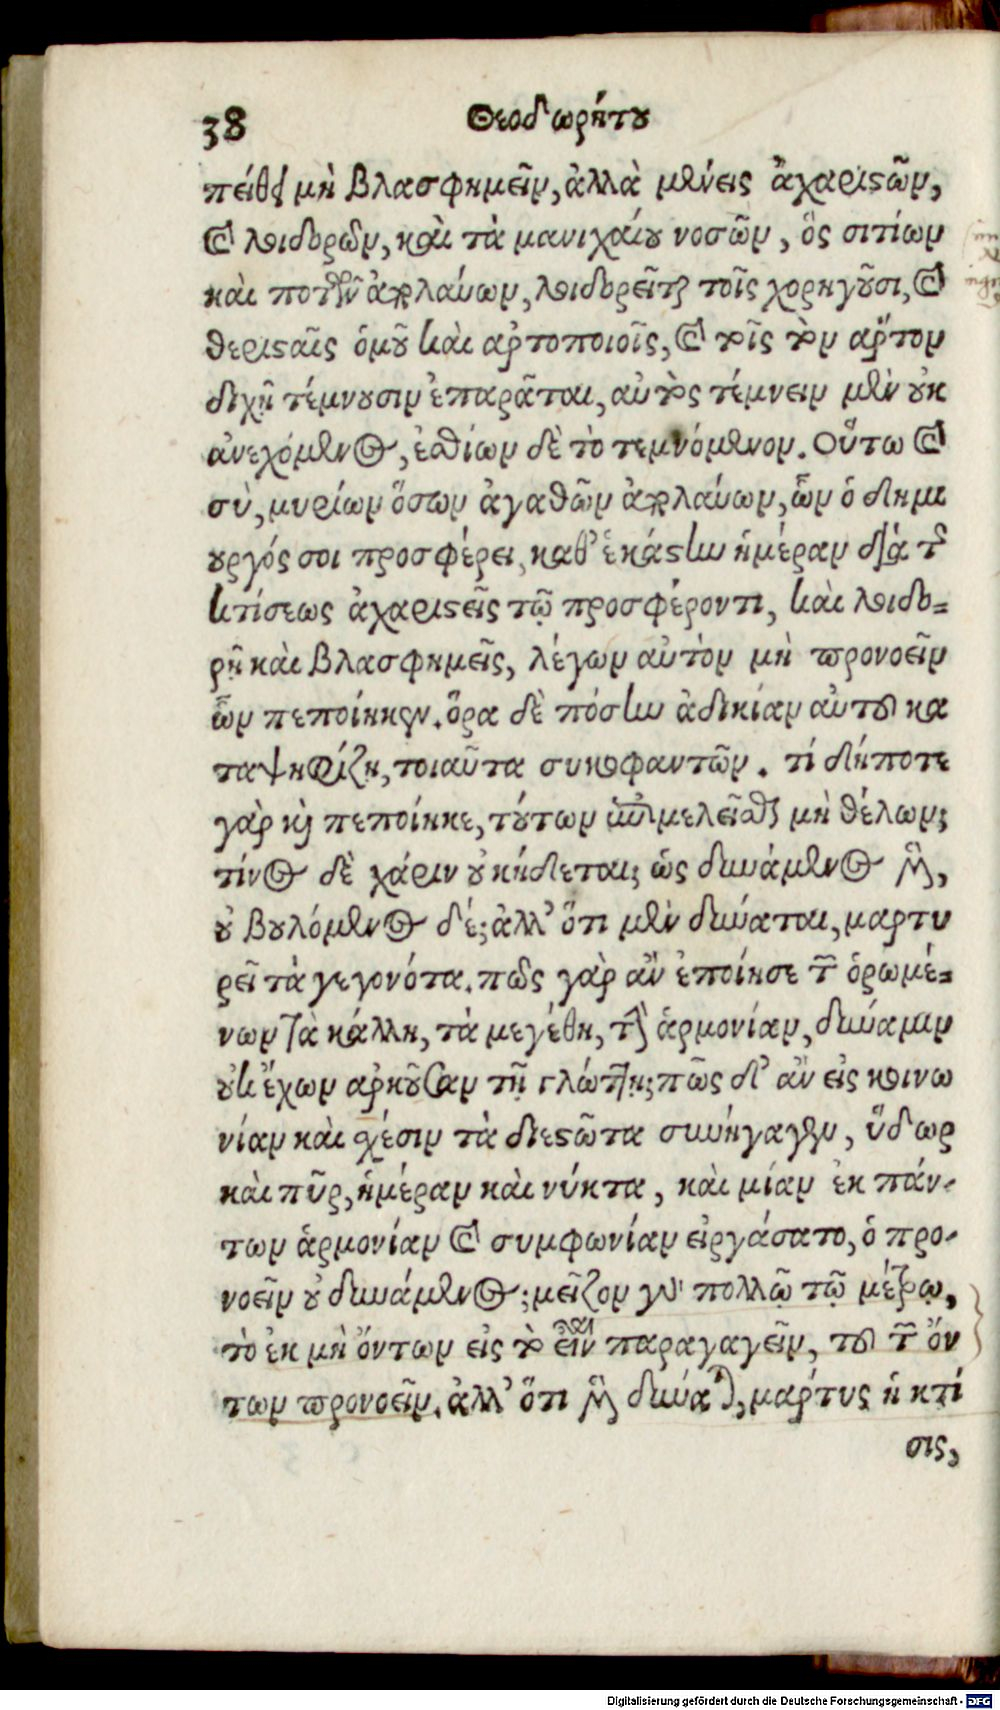 38 Θεοδωρήτου
πείθει μὴ βλασφημεῖν, ἀλλὰ μένεις ἀχαριστῶν,
καὶ λοιδορῶν, καὶ τὰ μανιχαίου νοσῶν, ὃς σιτίων
καὶ ποτῶν ἀπολαύων, λοιδορεῖται τοῖς χορηγοῦσι, καὶ
θερισταῖς ὁμοῦ καὶ ἀρτοποιοῖς, καὶ τοῖς τὸν ἄρτον
διχῆ τέμνουσιν ἐπαρᾶται, αὐτὸς τέμνειν μὲν οὐκ
ἀνεχόμενος, ἐσθίων δὲ τὸ τεμνόμενον. Οὕτω καὶ
σὺ, μυρίων ὅσων ἀγαθῶν ἀπολαύων, ὧν ὁ δημι
ουργός σοι προσφέρει, καθ' ἑκάστην ἡμέραν διὰ τῆς
κτίσεως ἀχαριστεῖς τῷ προσφέροντι, καὶ λοιδο-
ρῇ καὶ βλασφημεῖς, λέγων αὐτὸν μὴ προνοεῖν
ὧν πεποίηκεν. ὅρα δὲ πόσην ἀδικίαν αὐτοῦ κα
ταψηφίζη, τοιαῦτα συκοφαντῶν. τί δήποτε
γὰρ καὶ πεποίηκε, τούτων ἐπιμελεῖσθαι μὴ θέλων;
τίνος δὲ χάριν οὐ κήδεται; ὡς δυνάμενος μὲν,
οὐ βουλόμενος δέ; ἀλλ' ὅτι μὲν δύναται, μαρτυ
ρεῖ τὰ γεγονότα. πῶς γὰρ ἂν ἐποίησε τῶν ὁρωμέ-
νων τὰ κάλλη, τὰ μεγέθη, τὴν ἁρμονίαν, δύναμιν
οὐκ ἔχων ἀρκοῦσαν τῇ γλώττῃ; πῶς δ' ἂν εἰς κοινω
νίαν καὶ σχέσιν τὰ διεστῶτα συνήγαγεν, ὕδωρ
καὶ πῦρ, ἡμέραν καὶ νύκτα, καὶ μίαν ἐκ πάν-
των ἁρμονίαν καὶ συμφωνίαν εἰργάσατο, ὁ προ-
νοεῖν οὐ δυνάμενος; μεῖζον γὰρ πολλῷ τῷ μέτρῳ,
τὸ ἐκ μὴ ὄντων εἰς τὸ εἶναι παραγαγεῖν, τοῦ τῶν ὄν
των προνοεῖν. ἀλλ' ὅτι μὲν δύναται, μάρτυς ἡ κτί
σις,
Digitalisierung gefördert durch die Deutsche Forschungsgemeinschaft - DFG